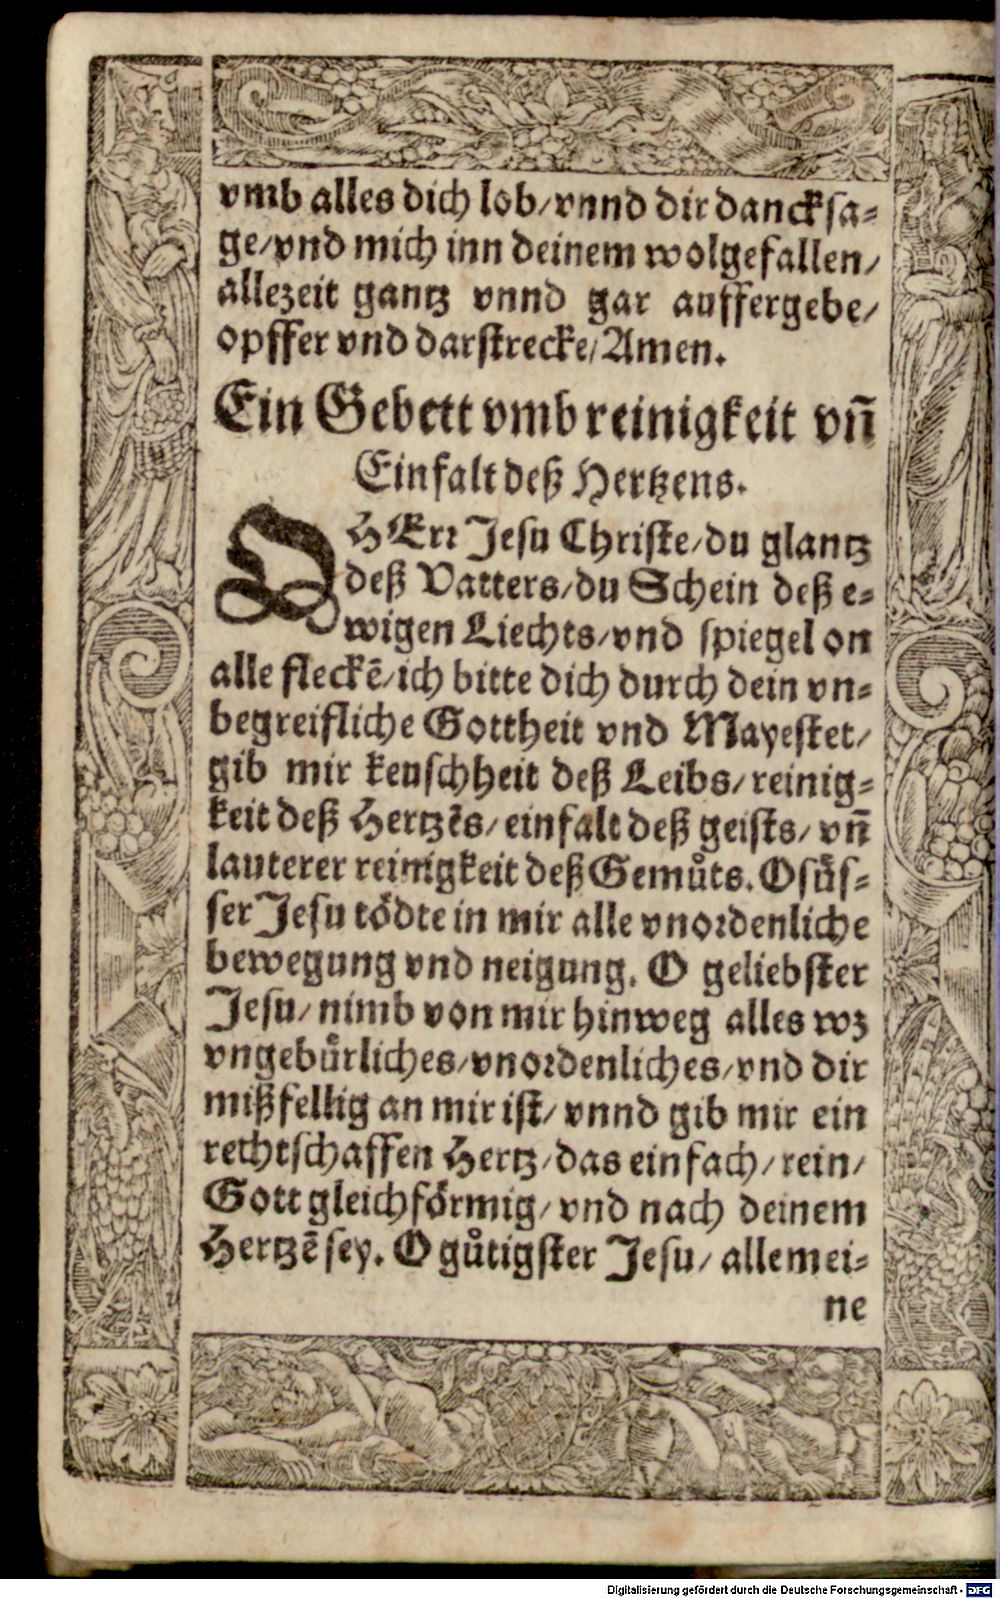 vmb alles dich lob/vnnd dir dancksa⸗
ge/vnd mich inn deinem wolgefallen/
allezeit gantz vnnd gar auffergebe/
opffer vnd darstrecke/Amen.
Ein Gebett vmb reinigkeit vn̄
Einfalt deß Hertzens.
O HErr Jesu Christe/du glantz
deß Vatters/du Schein deß e⸗
wigen Liechts/vnd spiegel on
alle fleckē/ich bitte dich durch dein vn⸗
begreifliche Gottheit vnd Mayestet/
gib mir keuschheit deß Leibs/reinig⸗
keit deß Hertzēs/einfalt deß geists/vn̄
lauterer reinigkeit deß Gemuͤts. O suͤs⸗
ser Jesu toͤdte in mir alle vnordenliche
bewegung vnd neigung. O geliebster
Jesu/nimb von mir hinweg alles wz
vngebuͤrliches/vnordenliches/vnd dir
mißfellig an mir ist/vnnd gib mir ein
rechtschaffen Hertz/das einfach/rein/
Gott gleichfoͤrmig/vnd nach deinem
Hertzē sey. O guͤtigster Jesu/alle mei⸗
ne
Digitalisierung gefördert durch die Deutsche Forschungsgemeinschaft - DFG